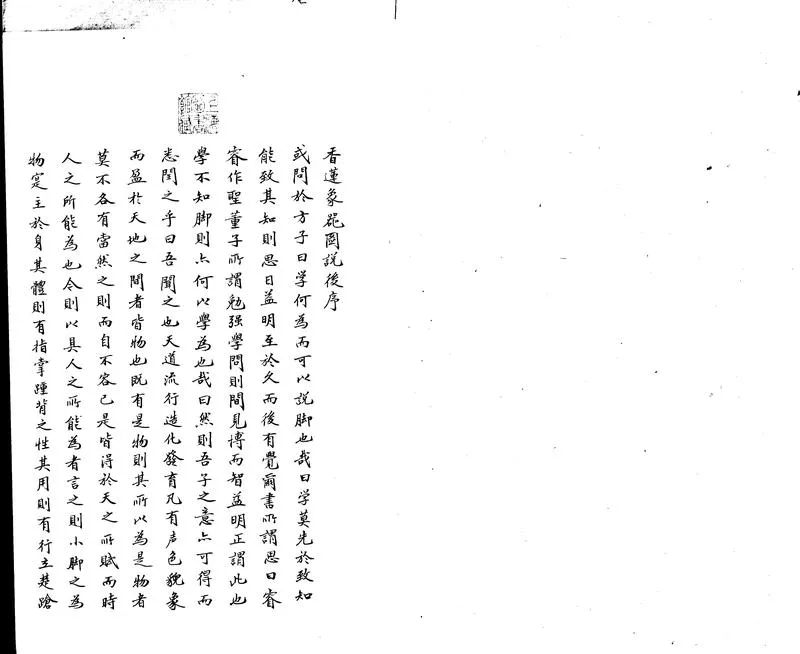 香蓮象罷圖說後序
或問於方子曰学何為而可以說脚也哉曰学莫先於致知
能致其知則思日益明至於久而後有覺爾書所謂思曰睿
睿作聖董子所謂勉强學問則聞見博而智益明正謂此也
學不知脚則亦何以學為也哉曰然則吾子之意亦可得而
悉聞之乎曰吾聞之也天道流行造化發育凡有声色貌象
而盈於天地之間者皆物也既有是物則其所以為是物者
莫不各有當然之則而自不容已是皆得於天之所賦而時
人之所能為也今則以其人之所能為者言之則小脚之為
物寔主於身其體則有指掌踵背之性其用則有行立楚蹌